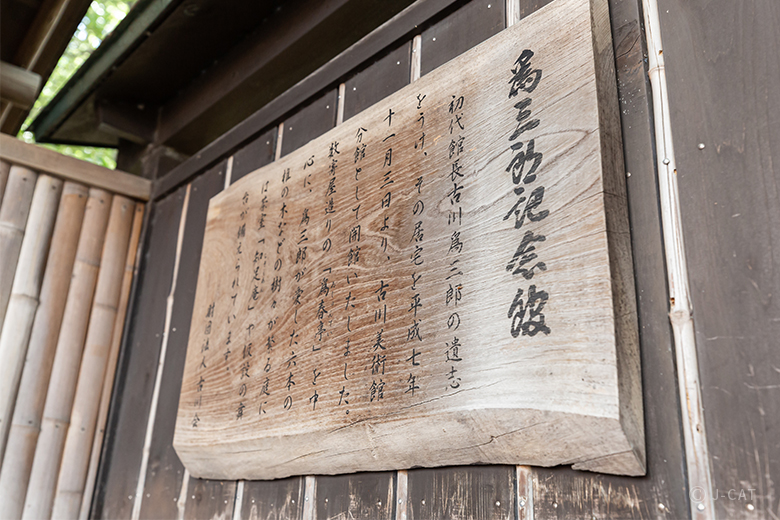 為三郎記念館
初代館長古川為三郎の遺志
をうけ、その居宅を平成七年
十一月三日より、古川美術館
分館として開館いたしました。
数寄屋造りの「為春亭」を中
心に、為三郎が愛した六本の
椎の木などの樹々が茂る庭に
は茶室「知足庵」や
台が備えられています。
財団法人古川会
© J-CAT